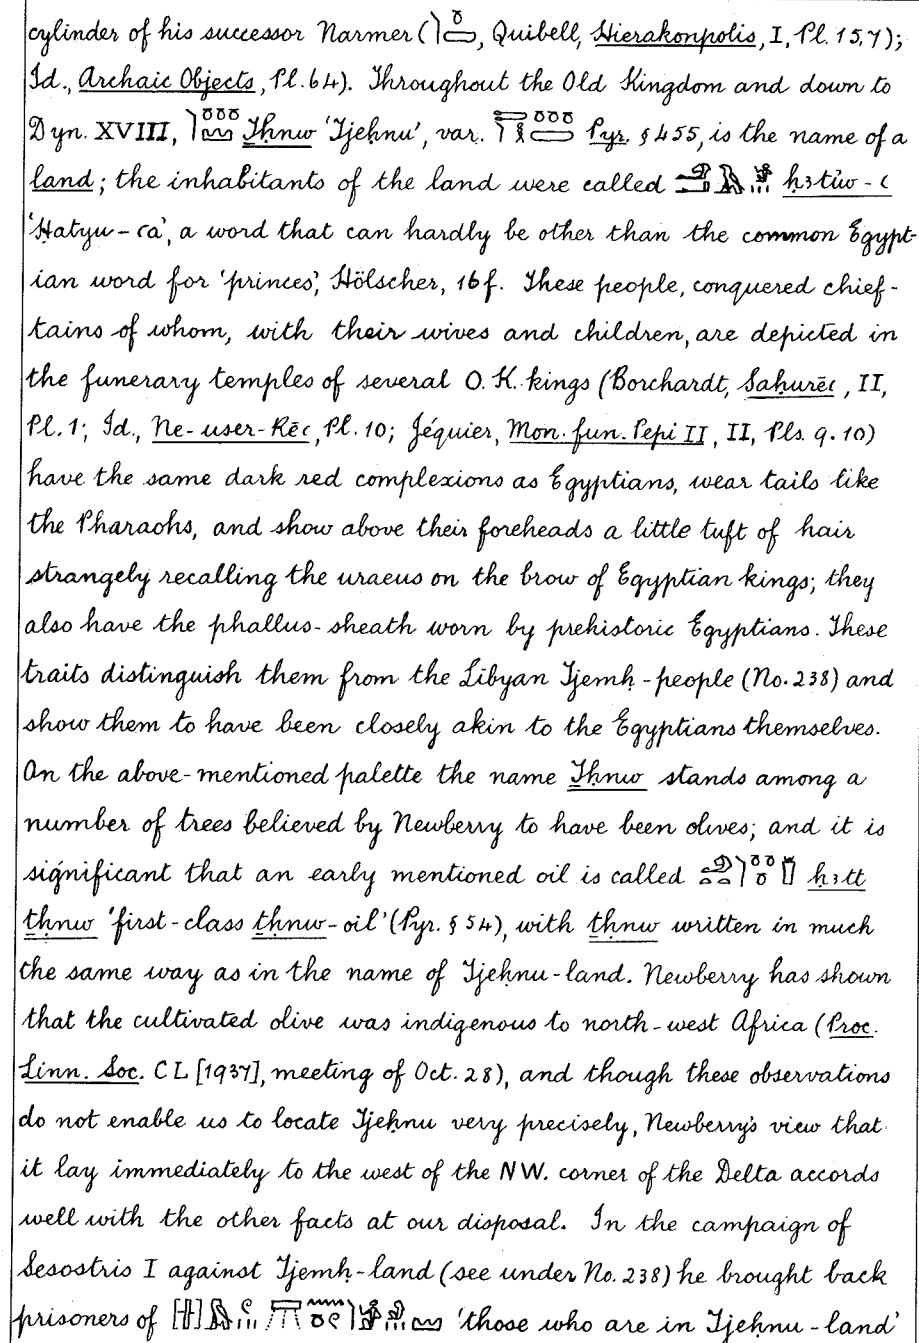 cylinder of his successor Narmer (, Quibell, Hierakonpolis, I, Pl. 15,7);
Id., Archaic Objects, Pl. 64). Throughout the Old Kingdom and down to
Dyn. XVIII, Ṯḥnw 'Tjeḥnu', var. Pyr. § 455, is the name of a
land; the inhabitants of the land were called ḥꜣtı͗w-ꜥ
'Ḥatyu-ꜥa', a word that can hardly be other than the common Egypt-
ian word for 'princes', Hölscher, 16f. These people, conquered chief-
tains of whom, with their wives and children, are depicted in
the funerary temples of several O.K. kings (Borchardt, Saḥurēꜥ, II,
Pl. 1; Id., Ne-user-Rēꜥ, Pl. 10; Jéquier, Mon. fun. Pepi II, II, Pls. 9. 10)
have the same dark red complexions as Egyptians, wear tails like
the Pharaohs, and show above their foreheads a little tuft of hair
strangely recalling the uraeus on the brow of Egyptian kings; they
also have the phallus-sheath worn by prehistoric Egyptians. These
traits distinguish them from the Libyan Tjemḥ-people (No. 238) and
show them to have been closely akin to the Egyptians themselves.
On the above-mentioned palette the name Ṯḥnw stands among a
number of trees believed by Newberry to have been olives; and it is
significant that an early mentioned oil is called ḥꜣtt
ṯḥnw 'first-class ṯḥnw-oil' (Pyr. § 54), with ṯḥnw written in much
the same way as in the name of Tjeḥnu-land. Newberry has shown
that the cultivated olive was indigenous to north-west Africa (Proc.
Linn. Soc. CL [1937], meeting of Oct. 28), and though these observations
do not enable us to locate Tjeḥnu very precisely, Newberry's view that
it lay immediately to the west of the NW. corner of the Delta accords
well with the other facts at our disposal. In the campaign of
Sesostris I against Tjemḥ-land (see under No. 238) he brought back
prisoners of 'those who are in Tjeḥnu-land'